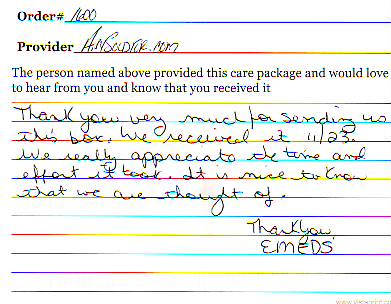 Order# 1600
Provider AnySoldier.com
The person named above provided this care package and would love
to hear from you and know that you received it
Thank you very much for sending us
this box. We received it 11/23.
We really appreciate the time and
effort it took. It is nice to know
that we are thought of.
Thank You
EMEDS